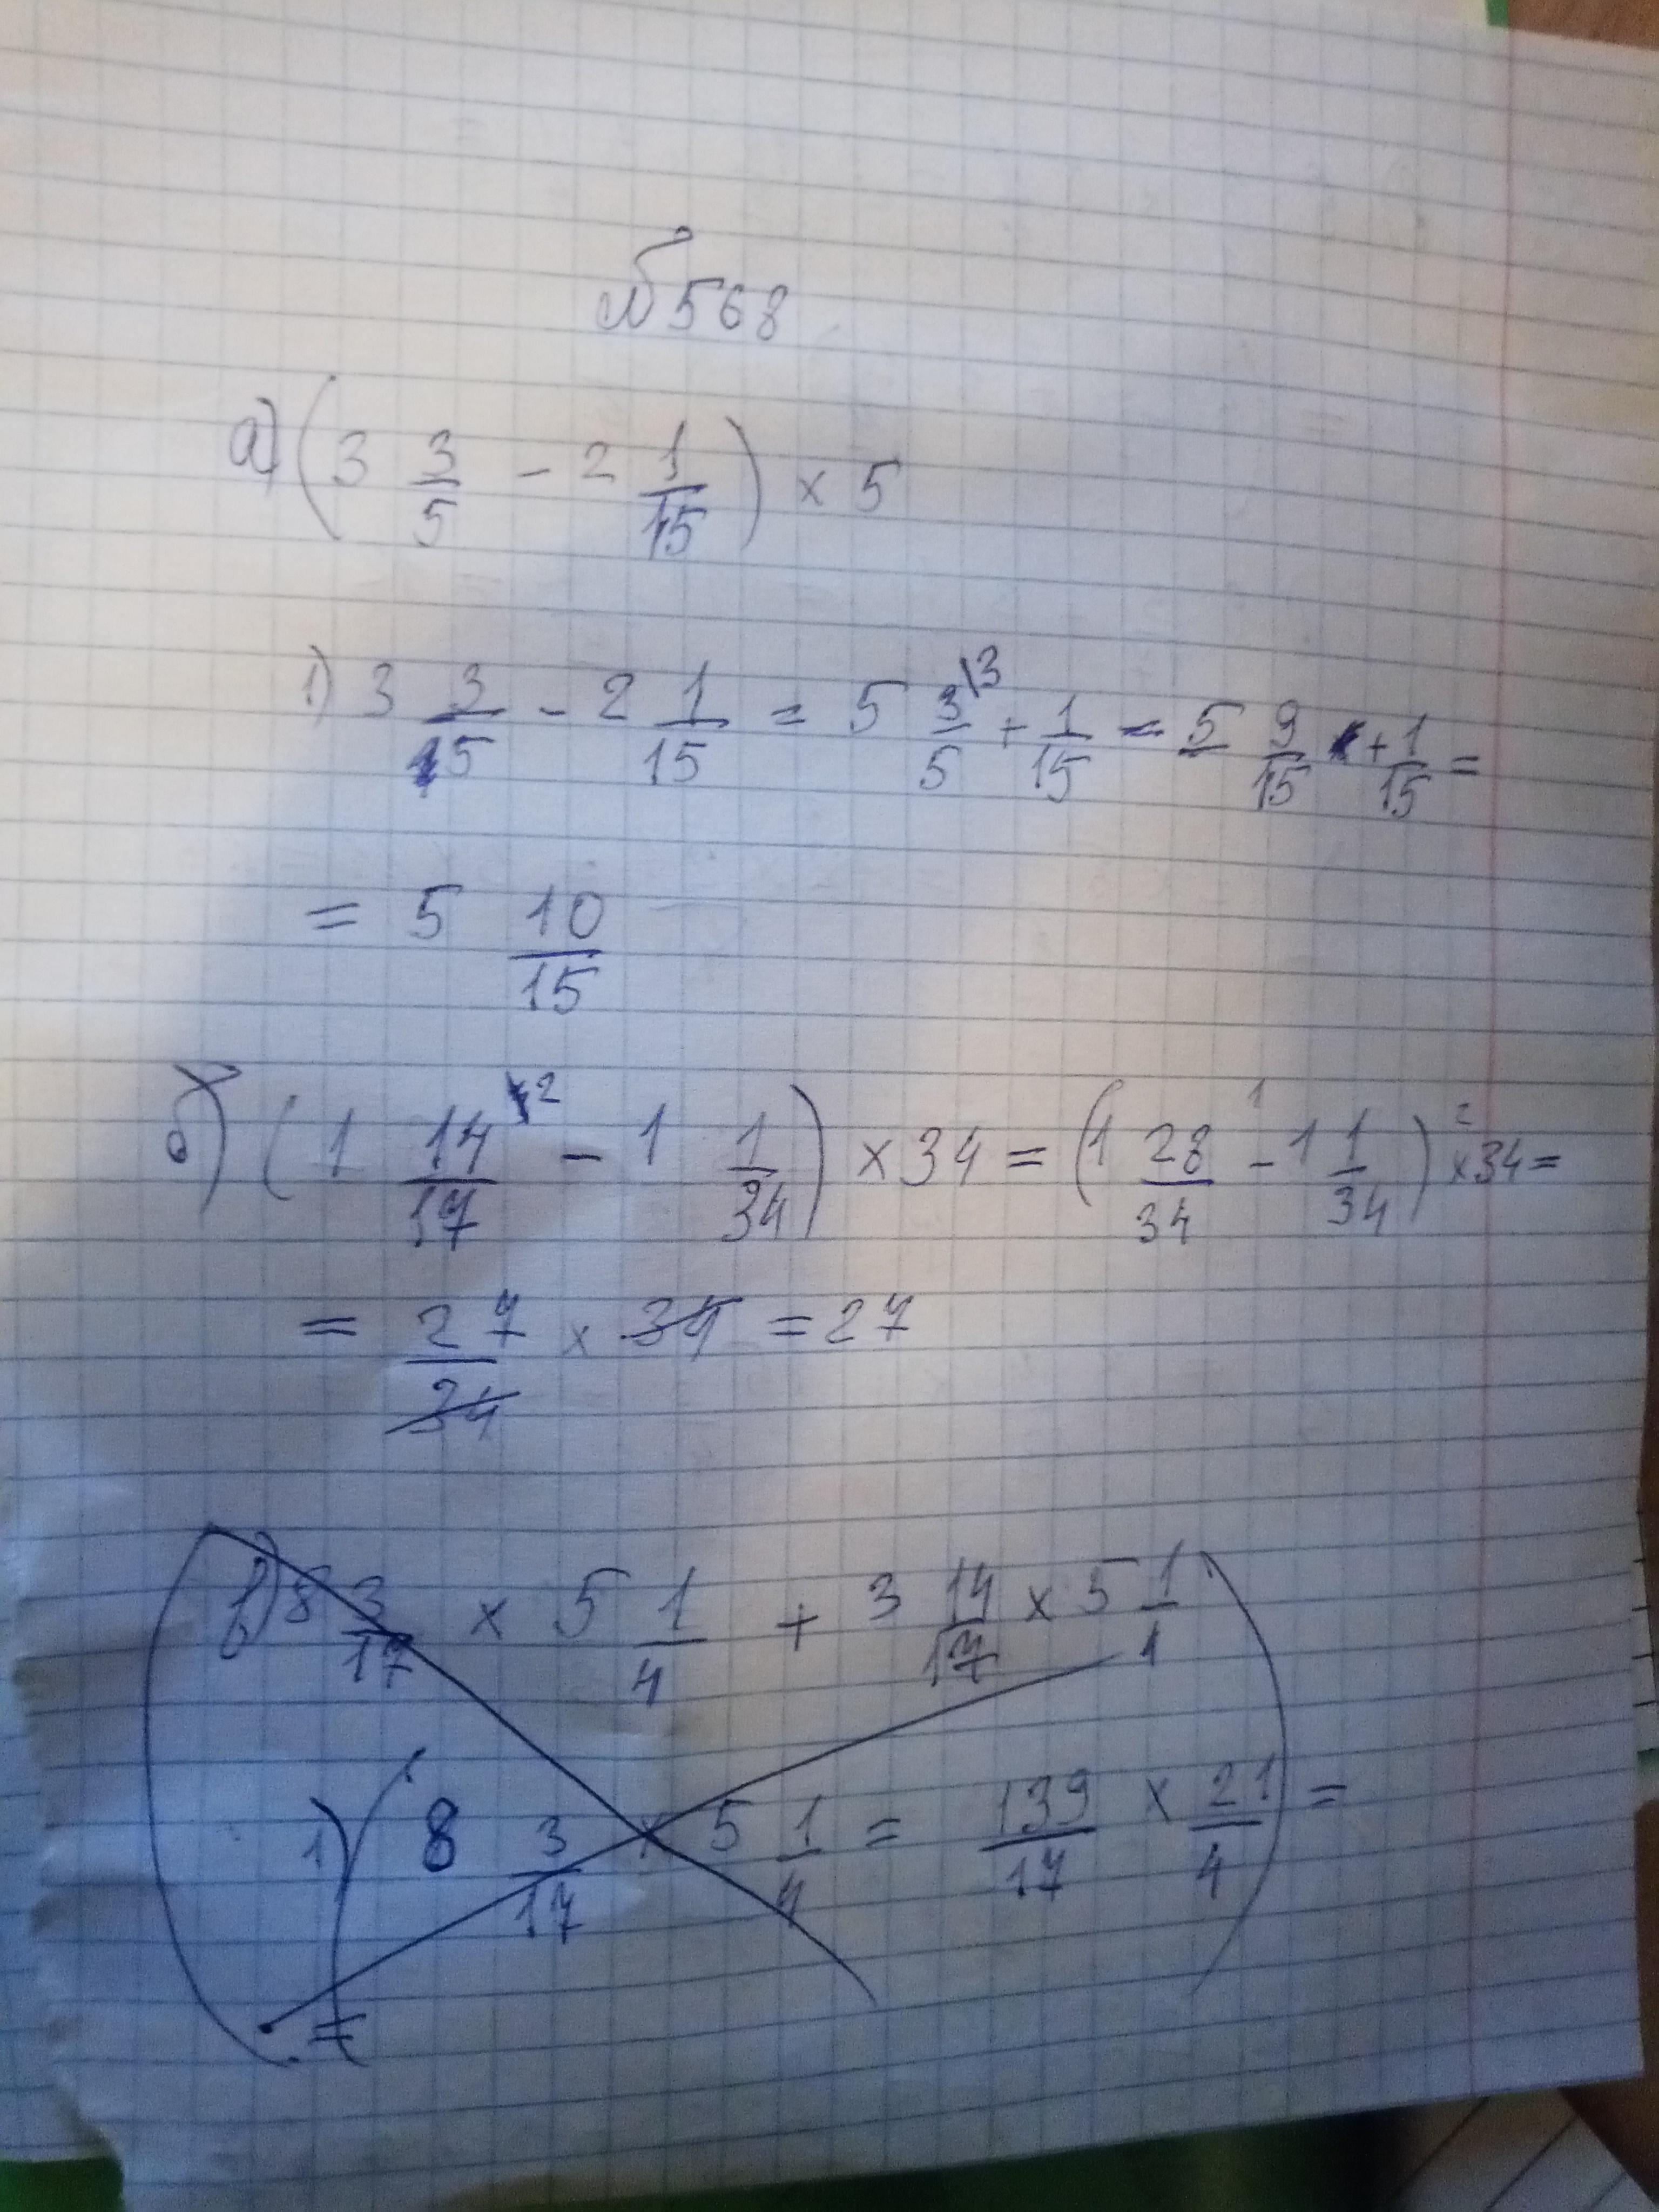 №568
а) (3 3/5 - 2 1/15) × 5
1) 3 3/15 - 2 1/15 = 5 3/5 \3 + 1/15 = 5 9/15 + 1/15 =
= 5 10/15
б) (1 14/17 \2 - 1 1/34) × 34 = (1 28/34 -¹ 1 1/34) ×² 34 =
= 27/34 × 34 = 27
в) 8 3/17 × 5 1/4 + 3 14/17 × 5 1/1
1) 8 3/17 × 5 1/4 = 139/17 × 21/4 =
=